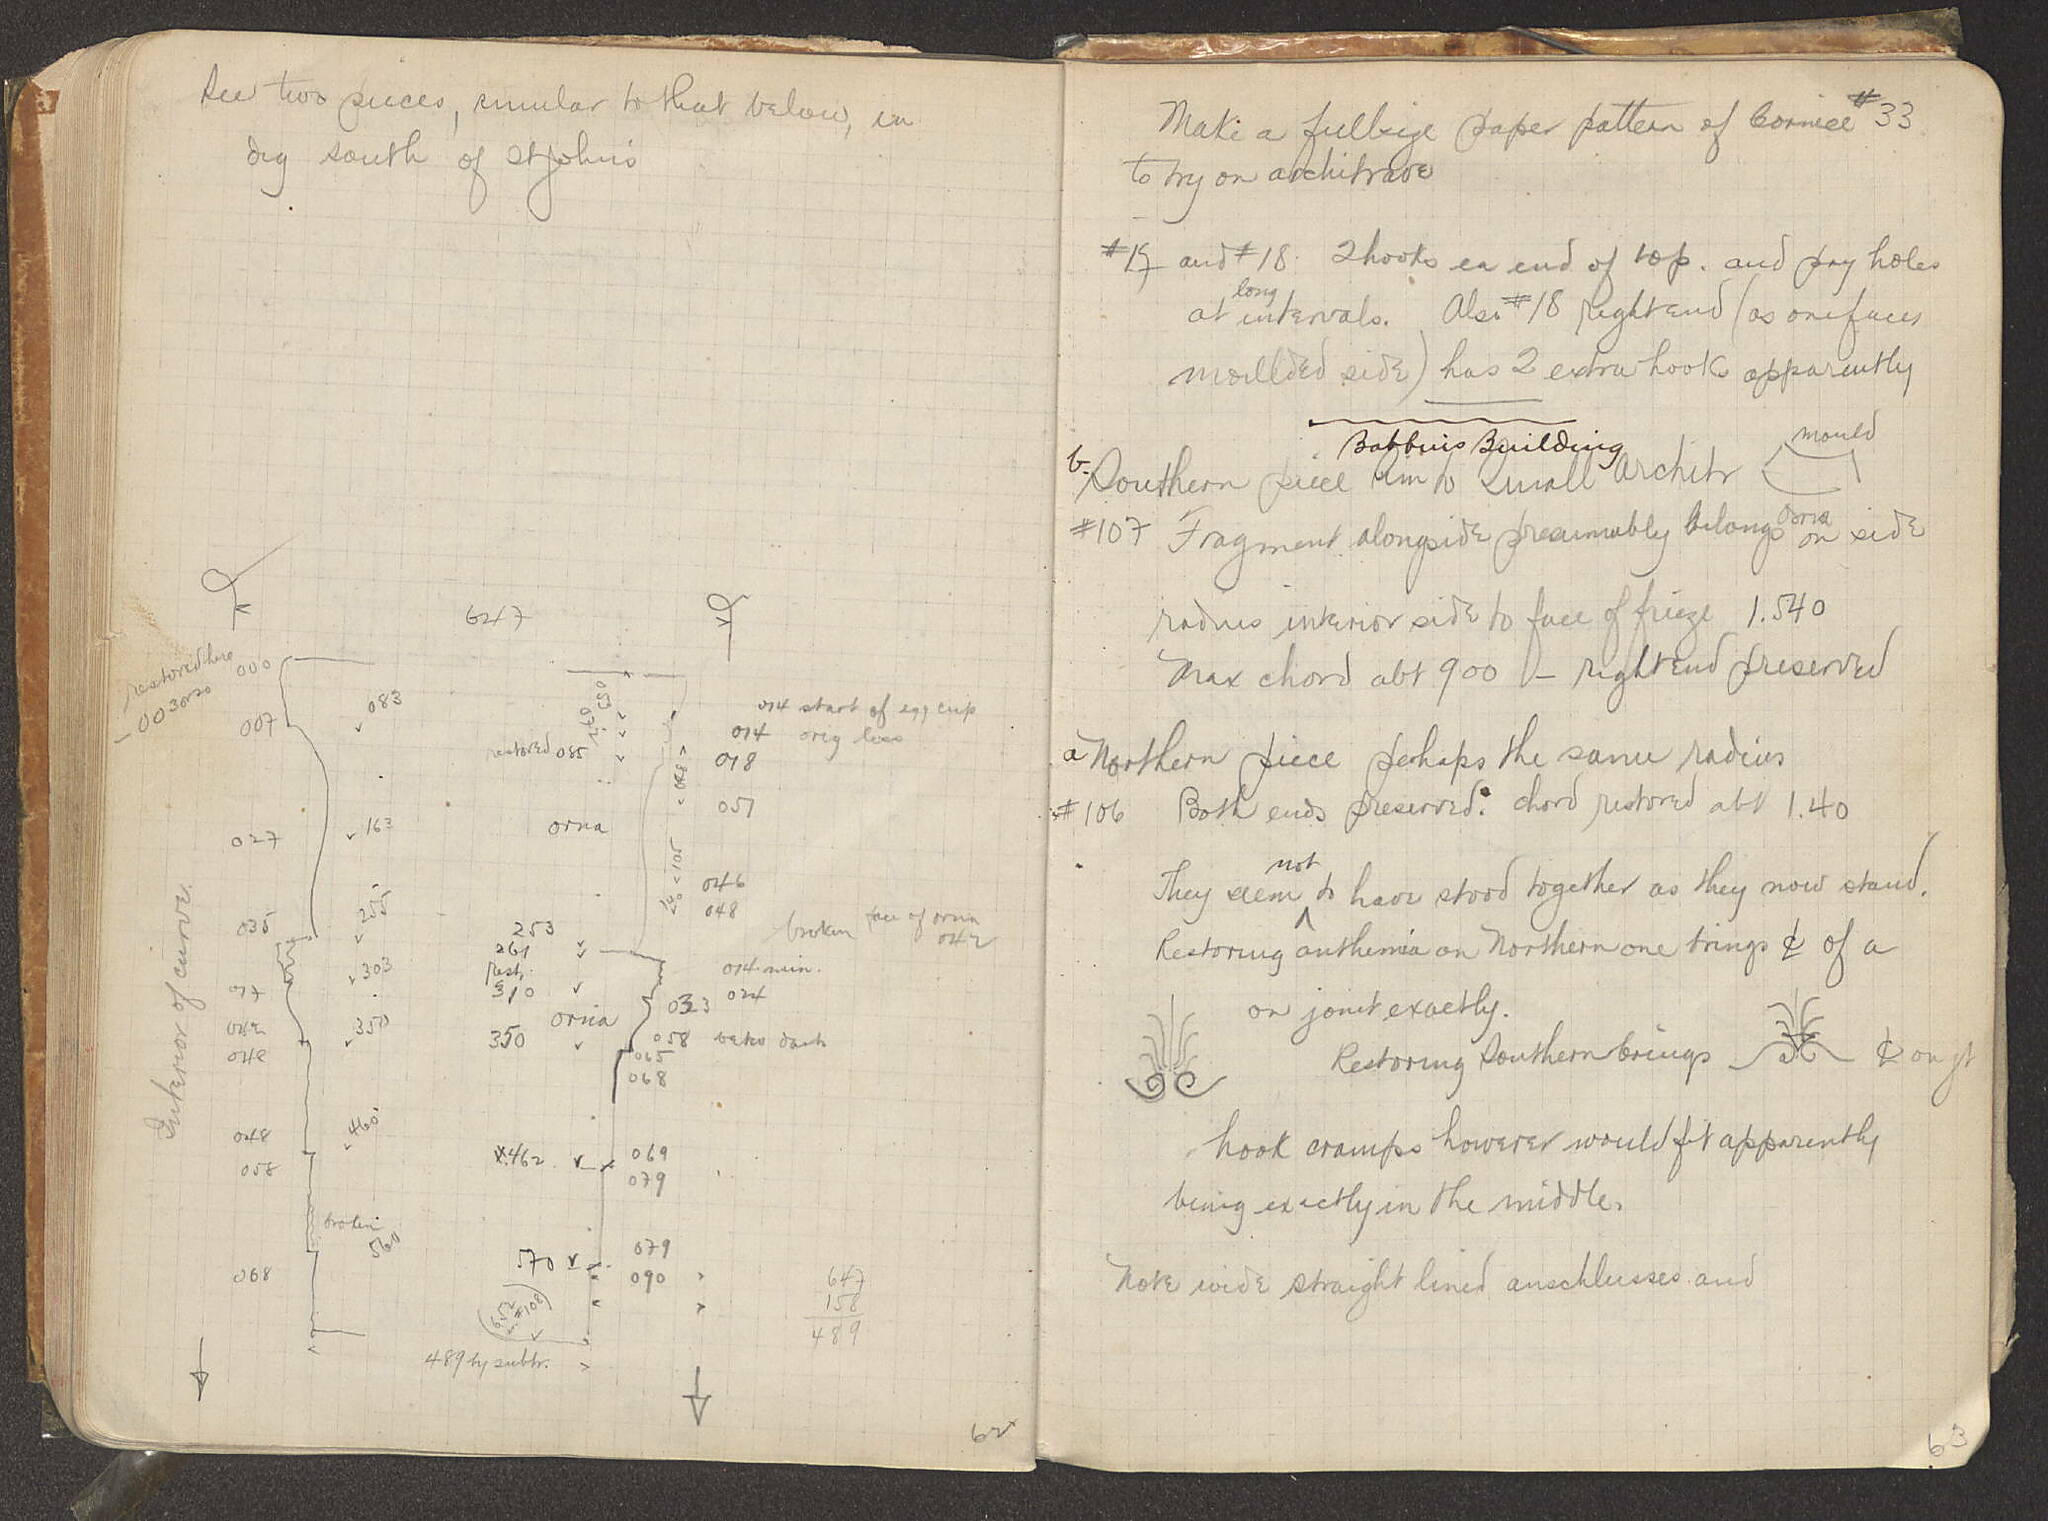 See two pieces, similar to that below, in
dig south of St John's
647
restored here
000
-003 orso
007
083
restored 085
014 start of egg cup
014 orig loss
018
051
048
orna
027
163
105
046
048
035
255
253
261
rest.
310
broken face of orna
042
303
014 min.
024
017
orna
023
042
350
350
058
048
065
068
Interior of curve.
048
460
.462
069
058
079
broken
560
570
079
068
090
652
#108
647
158
489
489 by subtr.
62
Make a fullsize paper pattern of Cornice #33
to try on architrave
#17 and #18. 2 hooks ea end of top. and pry holes
at long intervals. Also #18 right end (as one faces
moullded side) has 2 extra hooks apparently
Babbins Building
b. Southern piece sim to small archtr
mould
orna
#107 Fragment alongside presumably belongs on side
radius interior side to face of frieze 1.540
Max chord abt 900 – right end preserved
a Northern piece perhaps the same radius
#106 Both ends preserved. chord restored abt 1.40
They seem not to have stood together as they now stand.
Restoring anthemia on Northern one brings ₵ of a
on joint exactly.
Restoring Southern brings ₵ on jt
hook cramps however would fit apparently
being exactly in the middle.
Note wide straight lined anschlusses and
63